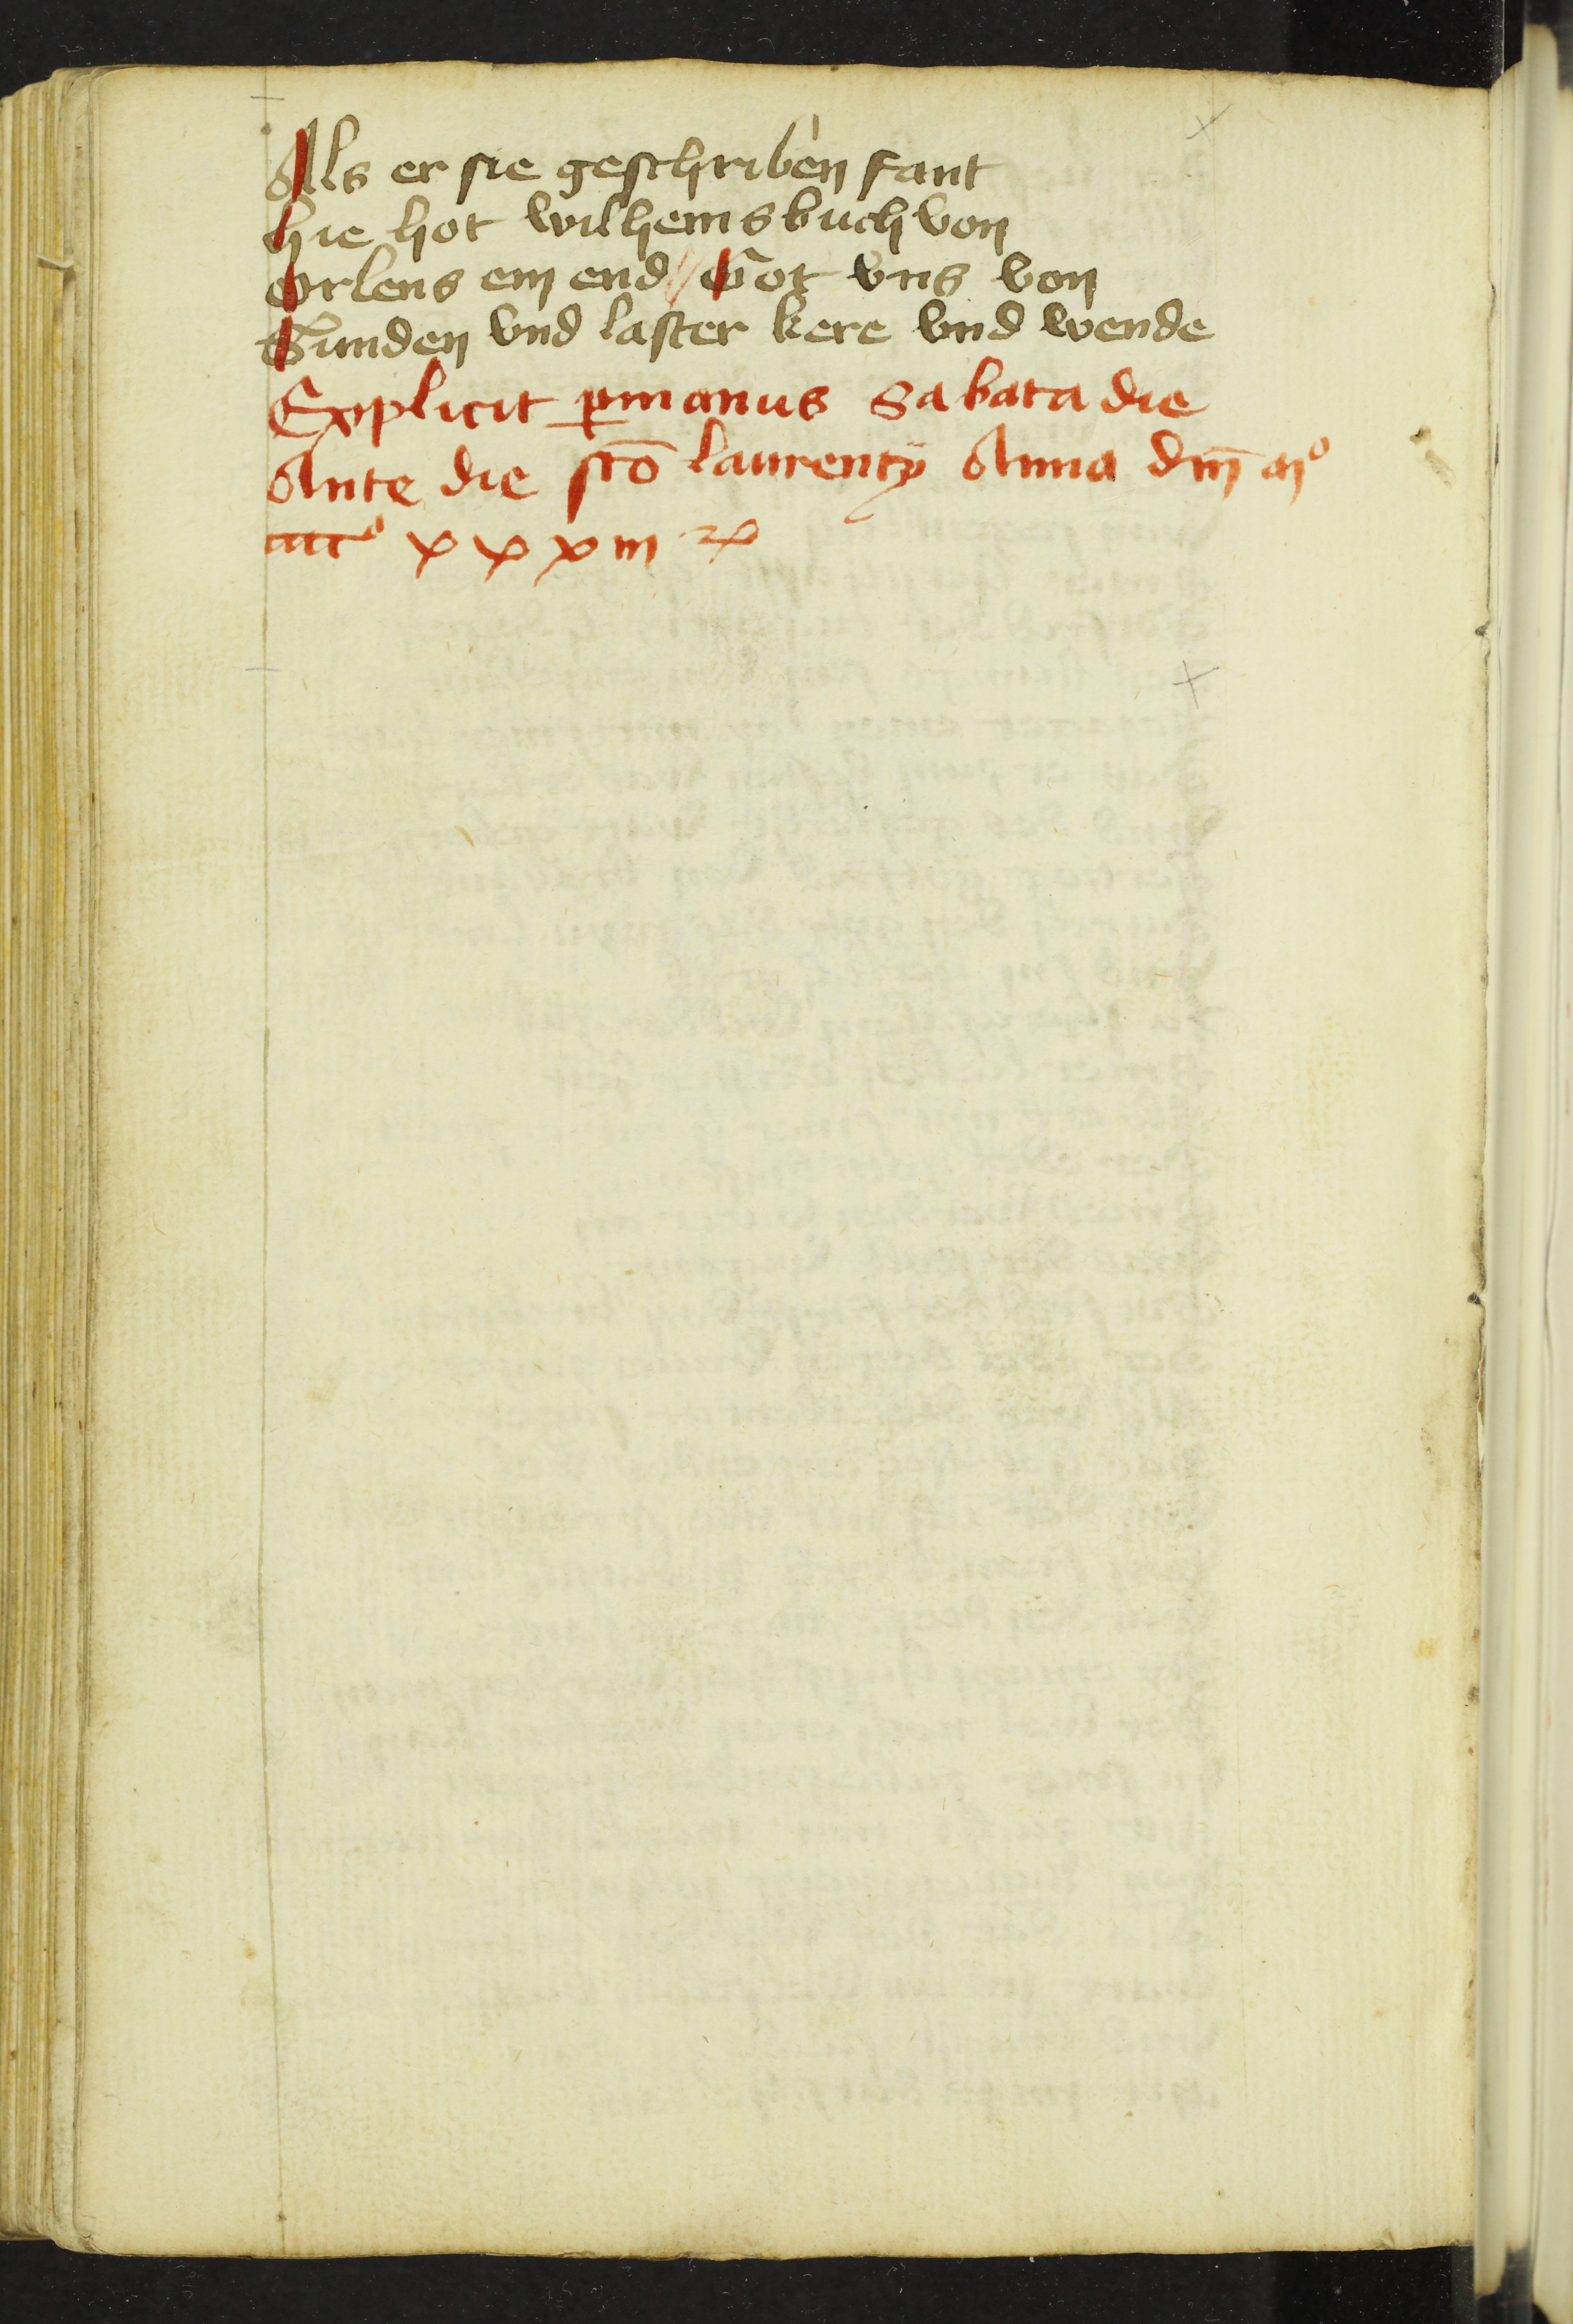 Als er sie geschriben fant
hie hot wilhems buch von
Orlens ein end // Got vns von
Sunden vnd laster kere vnd wende
Explicit ꝑ manus Sabata die
Ante die sctō laurentÿ Anno dm̄ mº
ccccº xxxiii